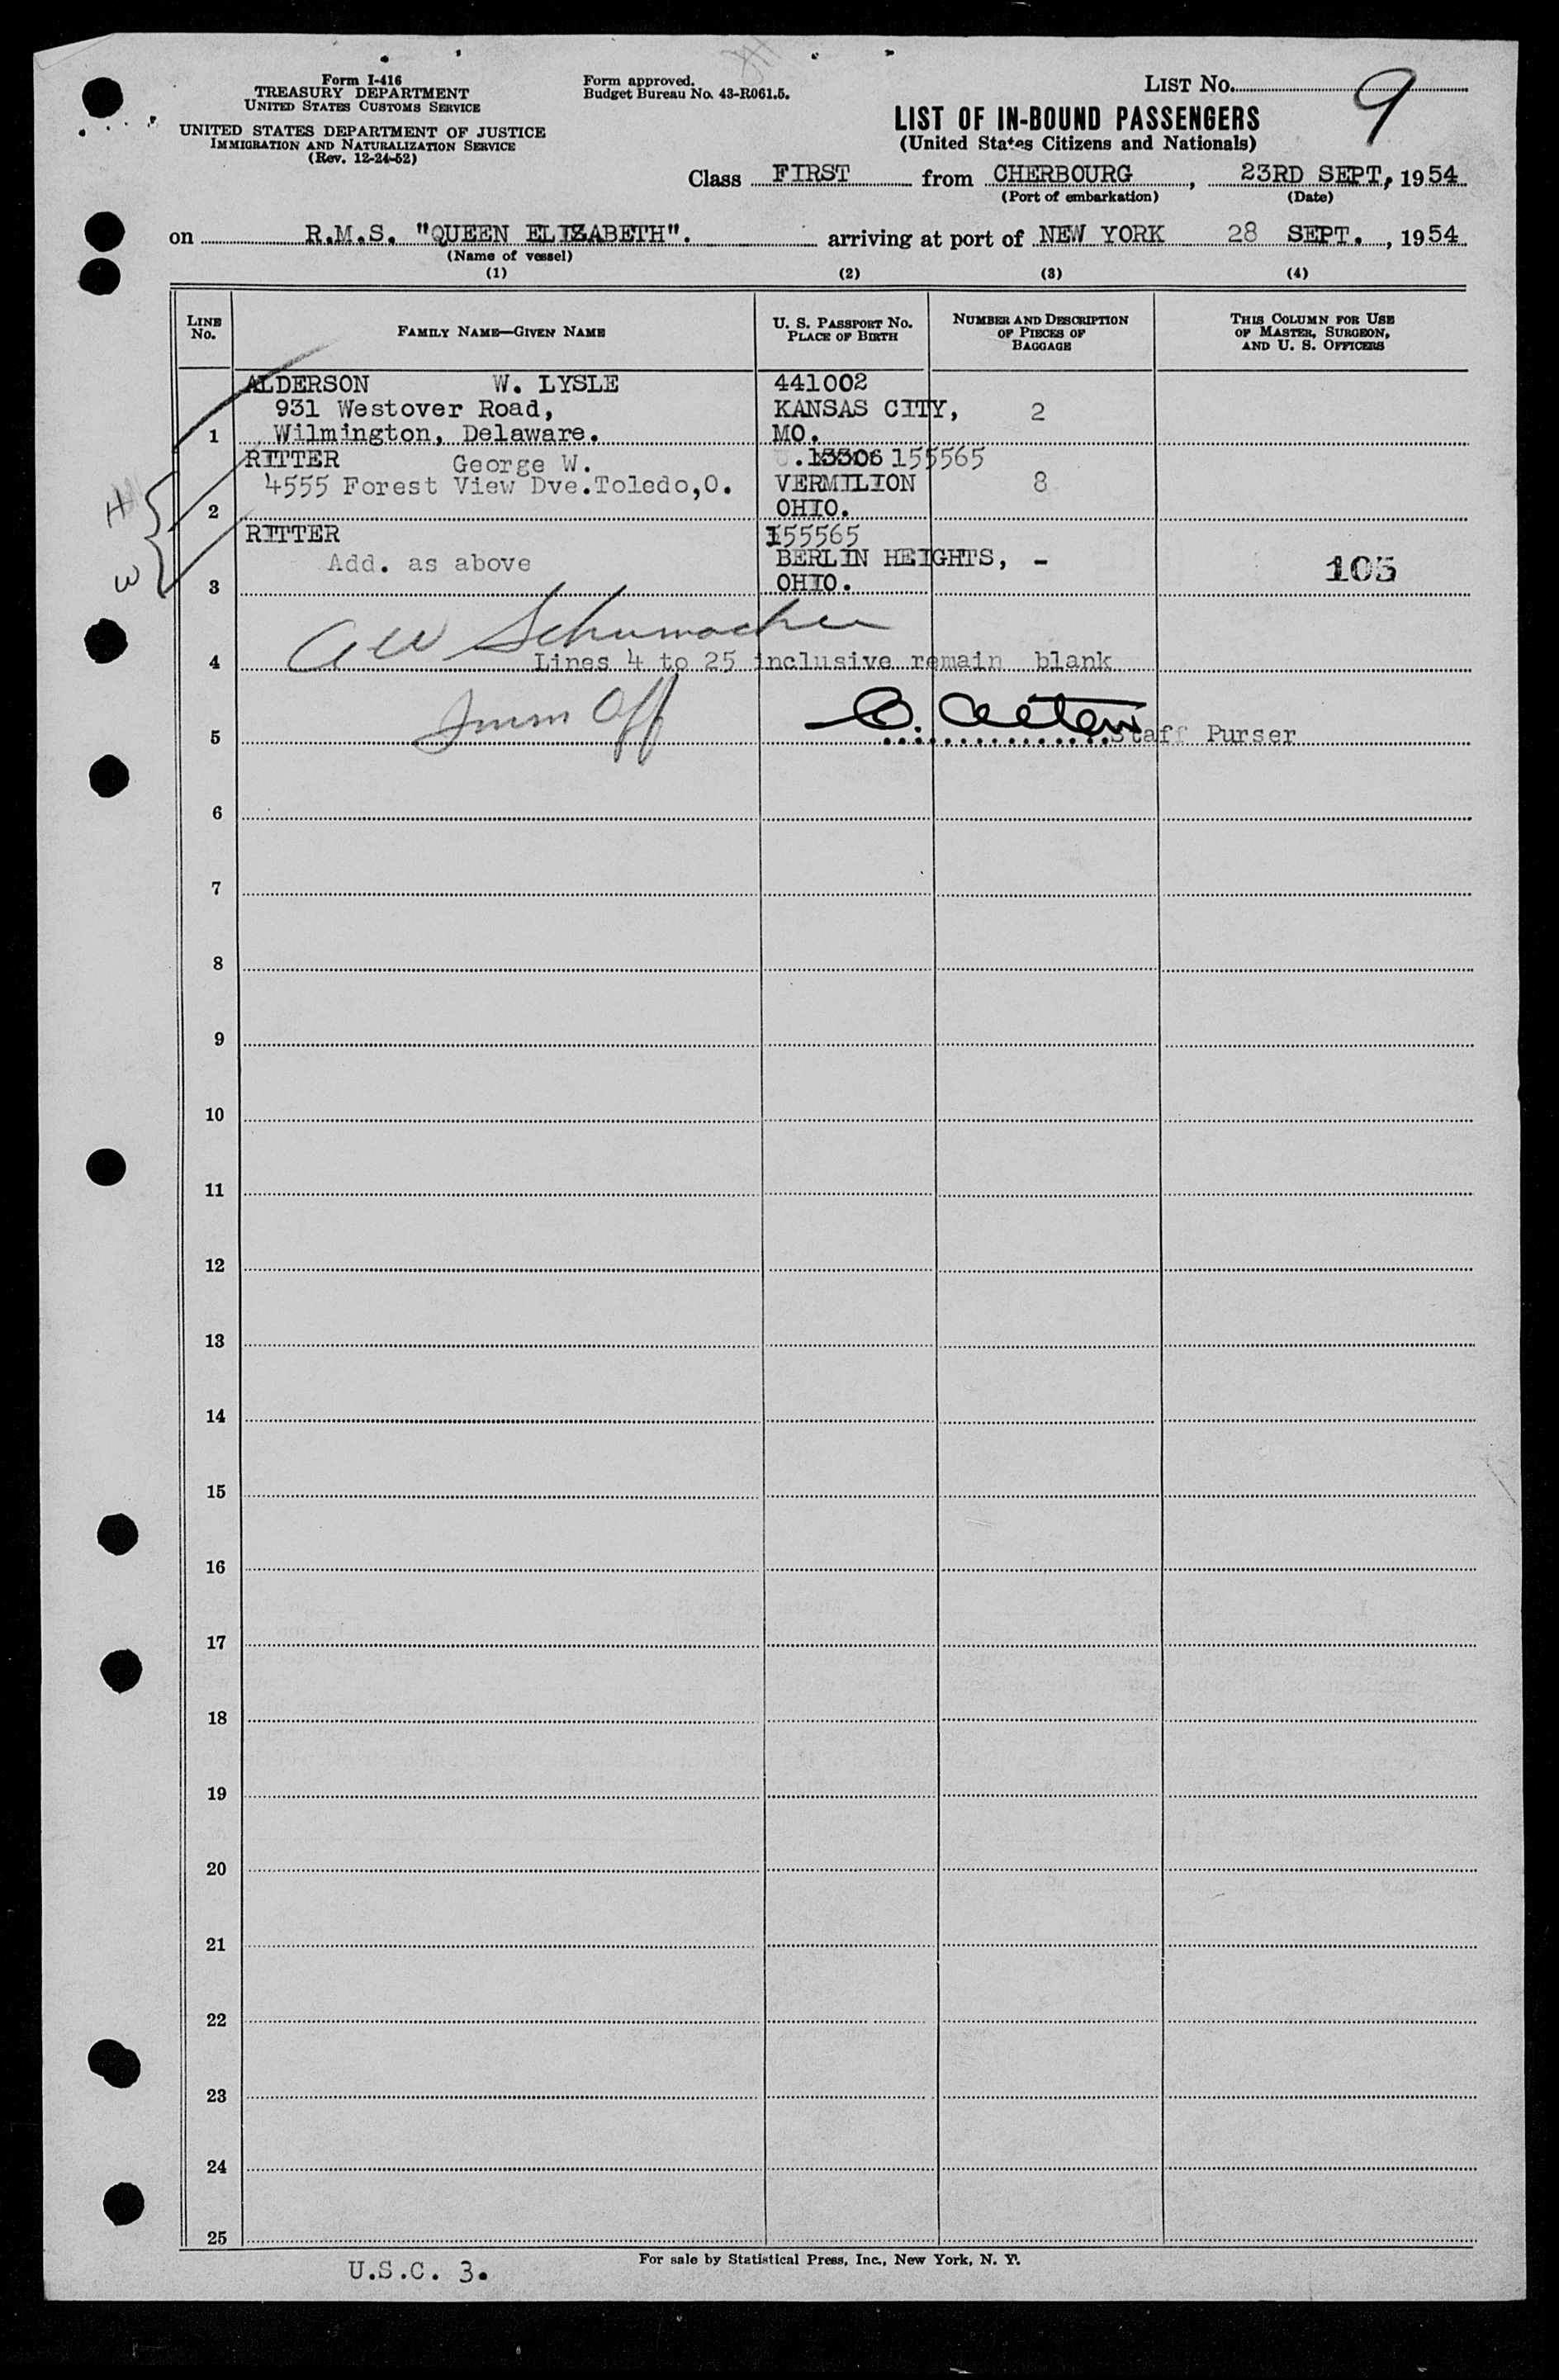 Form I-416
TREASURY DEPARTMENT
UNITED STATES CUSTOMS SERVICE
UNITED STATES DEPARTMENT OF JUSTICE
IMMIGRATION AND NATURALIZATION SERVICE
(Rev. 12-24-52)
Form approved.
Budget Bureau No. 43-R061.5.
LIST No. 9
LIST OF IN-BOUND PASSENGERS
(United States Citizens and Nationals)
Class FIRST from CHERBOURG, 23RD SEPT, 1954
(Port of embarkation) (Date)
on R.M.S. "QUEEN ELIZABETH". arriving at port of NEW YORK 28 SEPT., 1954
(Name of vessel)
(1) (2) (3) (4)
LINE No. FAMILY NAME—GIVEN NAME U. S. PASSPORT No. PLACE OF BIRTH NUMBER AND DESCRIPTION OF PIECES OF BAGGAGE THIS COLUMN FOR USE OF MASTER, SURGEON, AND U. S. OFFICERS
ALDERSON W. LYSLE 441002
931 Westover Road, KANSAS CITY, 2
1 Wilmington, Delaware. MO.
RITTER George W. .13306 155565
H 4555 Forest View Dve.Toledo,O. VERMILION 8
2 OHIO.
RITTER 155565
W Add. as above BERLIN HEIGHTS, - 105
3 OHIO.
A W Schumacher
4 Lines 4 to 25 inclusive remain blank
Imm Off
5 Staff Purser
6
7
8
9
10
11
12
13
14
15
16
17
18
19
20
21
22
23
24
25
U.S.C. 3.
For sale by Statistical Press, Inc., New York, N. Y.